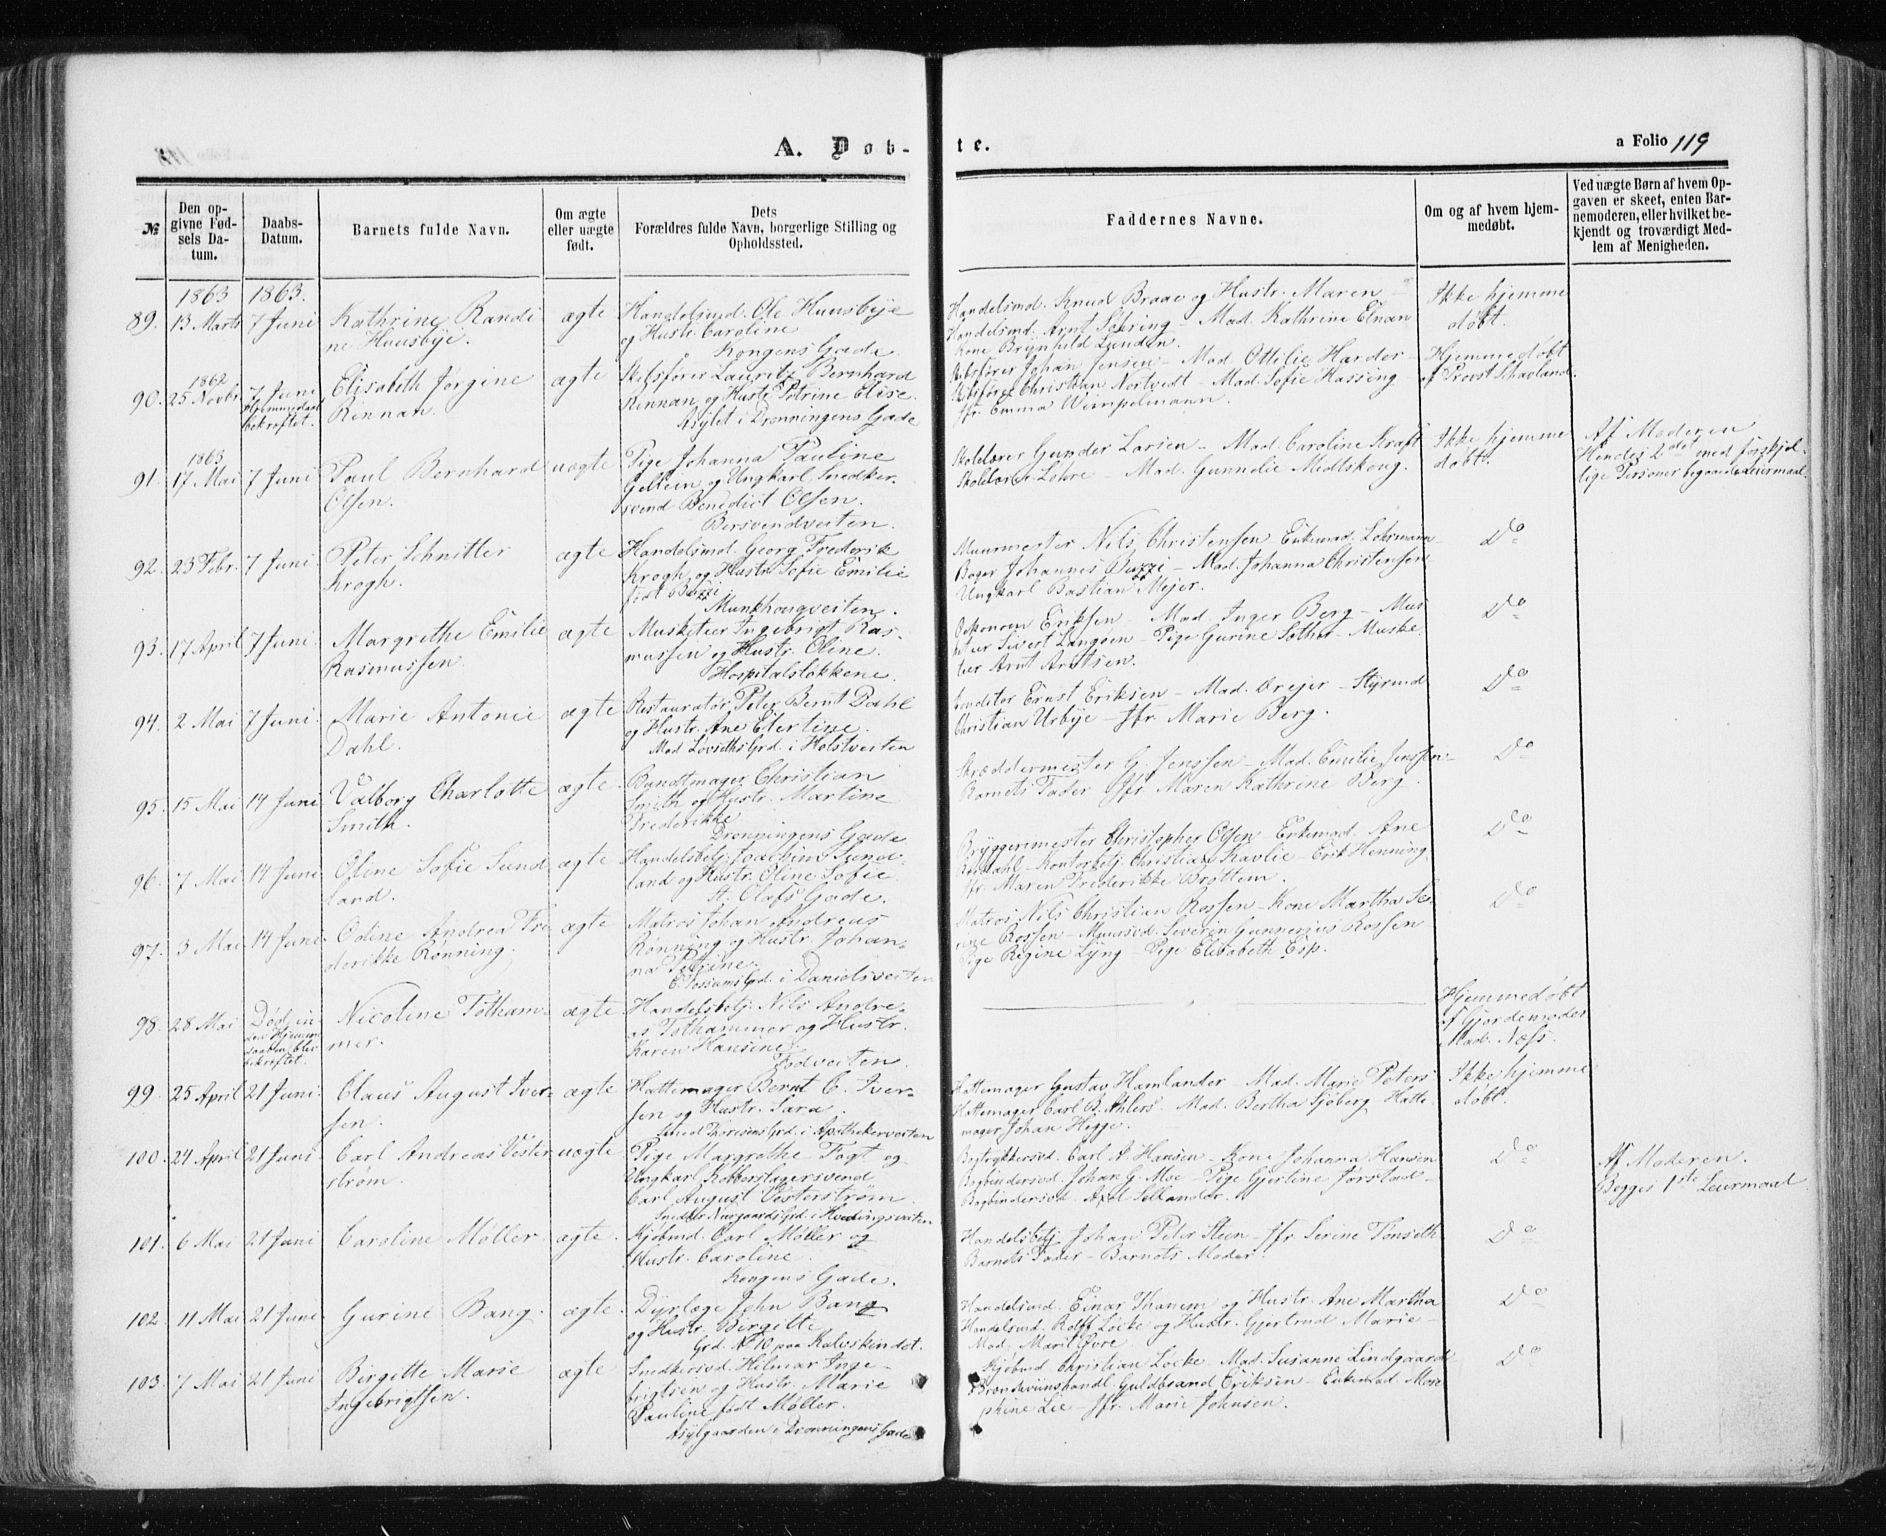 A. Døb-
te.
a Folio 119
№
Den op-
givne Fød-
sels Da-
tum.
Daabs-
Datum.
Barnets fulde Navn.
Om ægte
eller uægte
født.
Dets
Forældres fulde Navn, borgerlige Stilling og
Opholdssted.
Faddernes Navne.
Om og af hvem hjem-
medøbt.
Ved uægte Børn af hvem Op-
gaven er skeet, enten Bar-
nemoderen, eller hvilket be-
kjendt og troværdigt Med-
lem af Menigheden.
1863 1863.
89. 13 Marts 7 Juni
Kathrine Randi
ne Huusbye.
ægte
Handelsmd. Ole Huusbye
og Hustr. Caroline
Kongens Gade.
Handelsmd. Knud Braae og Hustr. Maren -
Handelsmd. Arnt Solring - Mad. Kathrine Einan
Kone Brynhild Lunden.
Ikke hjemme
døbt.
1862
90. 25 Novbr. 7 Juni
Hjemmedaab
bekræftet.
Elisabeth Jørgine
Rinnan.
ægte
Skibsfører Lauritz Bernhard
Rinnan og Hustr. Petrine Elise.
Asylet i Dronningens Gade
Skibsfører Johan Jensen - Mad Ottilie Harder -
Skibsfører Christian Nortvedt - Mad. Sofie Hassing -
Jfr. Emma Wimpelmann.
Hjemmedøbt
af Provst Shavland.
1863
91. 17 Mai 7 Juni
Paul Bernhard
Olsen.
uægte
Pige Johanna Pauline
Geltein og Ungkarl Snedker-
svend Benedict Olsen.
Bersvendveiten.
Skolelærer Gunder Larsen - Mad. Caroline Kraft
Skolelær Fr. Lohre - Mad. Gunnelie Midtskoug.
Ikke hjemme
døbt.
Af Moderen
Hendes 2det med forskjel-
lige Personer begaaede Leiermaal.
92. 23 Febr. 7 Juni
Peter Schnitler
Krogh.
ægte
Handelsmd. Georg Frederik
Krogh og Hustr. Sofie Emilie
født Buzzi
Munkhougveiten.
Muurmester Nils Christensen Enkemad. Lohrmann
Bager Johannes Buzzi - Mad. Johanna Christensen
Ungkarl Bastian Mejer.
Do
93. 17 April 7 Juni
Margrethe Emilie
Rasmussen.
ægte
Musketeer Ingebrigt Ras-
mussen og Hustr. Oline.
Hospitalsløkkene.
Oekonom Eriksen - Mad Inger Berg - Mus
keteer Sivert Langøen - Pige Gurine Sother - Muske
teer Arnt Arntsen.
Do
94. 2 Mai 7 Juni
Marie Antonie
Dahl.
ægte
Restauratør Peter Bernt Dahl
og Hustr. Ane Eterline.
Mad Løvseths Grd. i Holstveiten
Conditor Ernst Eriksen - Mad. Drejer - Styrmd
Christian Urbye - Jfr. Marie Berg.
Do
95. 15 Mai 14 Juni
Valborg Charlotte
Smith.
ægte.
Bundtmager Christian
Smith og Hustr. Martine
Frederikke
Dronningens Gade
Skræddermester G. Jenssen - Mad. Emilie Jenssen
Barnets Fader Jfr. Maren Kathrine Berg.
Do
96. 7 Mai 14 Juni
Oline Sofie Sund
land.
ægte
Handelsbetj. Joachim Sund-
land og Hustr. Oline Sofie.
St. Olafs Gade.
Bryggerimester Christopher Olsen - Enkemad. Ane
- Kontorbetj. Christian Kavlie - Erik Henning.
Jfr. Maren Frederikke Brøttem.
Do
97. 3 Mai 14 Juni.
Odine Andrea Fre
derikke Rønning.
ægte
Matros Johan Andreas
Rønning og Hustr. Johan-
na Petrine.
E. Vossums Grd. i Danielsveiten
Matros Nils Christian Rossen - Kone Martha Se-
rine Rossen - Muursvd. Severin Gunnerius Rossen
Pige Regine Lyng - Pige Elisabeth Esp.
Do
98. 28 Mai
Død in-
den Hjemme
daaben blev
bekræftet.
Nicoline Totham-
mer.
ægte
Handelsbetj. Nils Andre-
as Tothammer og Hustr.
Karen Hansine.
Fodveiten
Hjemmedøbt
af Gjordemoder
Mad. Næss.
99. 25 April 21 Juni.
Claus August Iver-
sen.
ægte
Hattemager Bernt C. Iver-
sen og Hustr. Sara.
Thoresens Grd. i Apothekerveiten
Hattemager Gustav Hamlander - Mad. Marie Peters
Hattemager Carl B. Ahlers - Mad. Bertha Sjøberg Hatte
mager Johan Hegge.
Ikke hjemme
døbt.
100. 24 April 21 Juni.
Carl Andreas Vester
strøm.
uægte
Pige Margrethe Fogt og
Ungkarl Kobberslagersvend
Carl August Vesterstrøm
Snedker Nurgaards Grd. i Hvedingsveiten
Bogtrykkersvd. Carl A Hansen - Kone Johanna Hansen
Bogbindersvd. Johan G. Moe - Pige Gjertine Jørstad -
Bogbindersvd. Axel Sellander.
Do
Af Moderen.
Begges 1ste Leiermaal.
101. 6 Mai 21 Juni
Caroline Møller
ægte.
Kjøbmd. Carl Møller og
Hustr. Caroline.
Kongens Gade.
Handelsbetj. Johan Peter Steen - Jfr Serine Tønseth
Barnets Fader - Barnets Moder.
Do
102. 11 Mai 21 Juni
Gurine Bang.
ægte.
Dyrlæge John Bang
og Hustr Birgitte
Grd. No 10 paa Kalvskindet.
Handelsmd. Einar Thanem og Hustr. Ane Martha
Handelsmd. Rolff Løcke og Hustr. Gjertrud Marie -
Mad. Marit Øvre
Do
103. 7 Mai 21 Juni
Birgitte Marie
Ingebrigtsen.
ægte
Snedkersvd. Hilmar Inge-
brigtsen og Hustr. Marie
Pauline født Møller.
Asylgaarden i Dronningens Gade
Kjøbmd Christian Løcke Mad. Susanne Lindgaard
Brændeviinshandl Guldbrand Eriksen - Enkemad. More
phine Lie - Jfr. Marie Johnsen.
Do